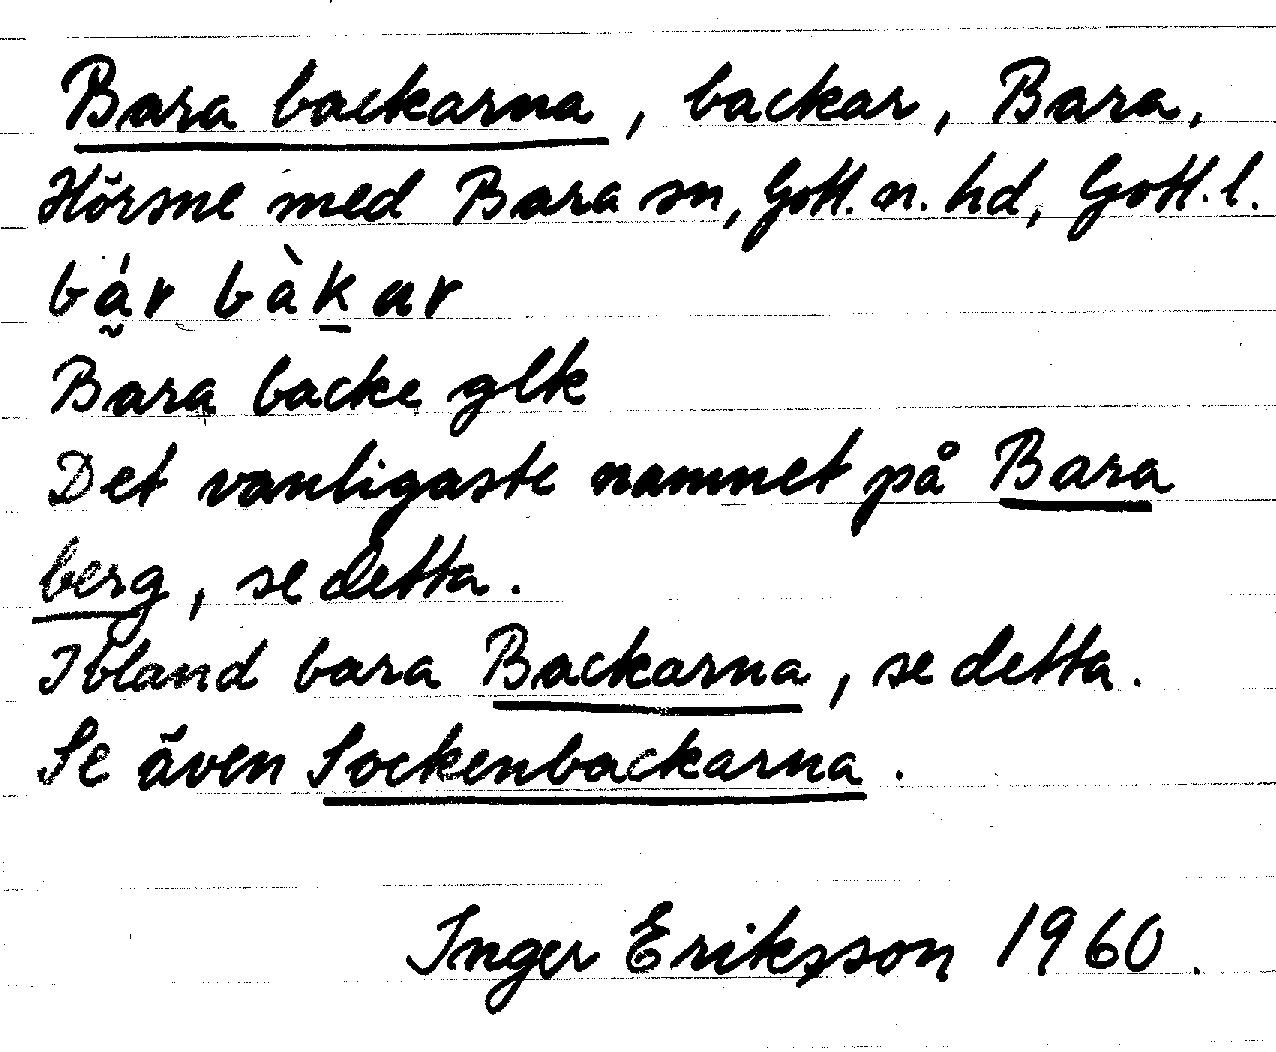 Bara backarna, backar, Bara,
Hörsne med Bara sn, Gotl. n. hd, Gotl. l.
bá̰r bàk̠ar
Bara backe glk
Det vanligaste namnet på Bara
berg, se detta.
Ibland bara Backarna, se detta.
Se även Sockenbackarna.
Inger Eriksson 1960.